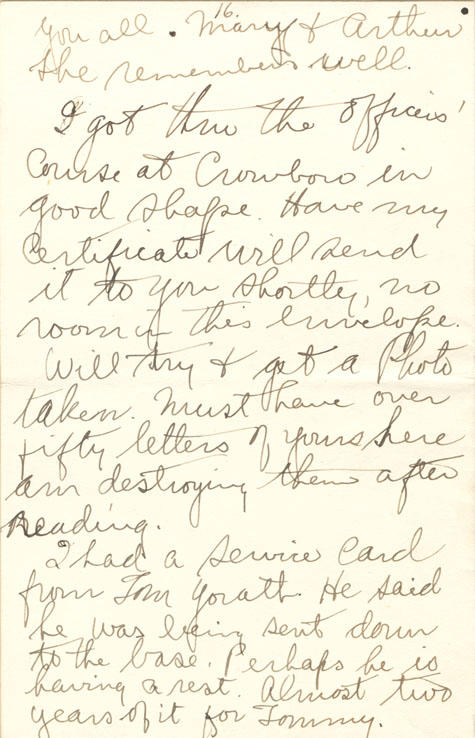 16.
you all. Mary & Arthur
she remembers well.
I got thru the Officers'
Course at Crowboro in
good shape. Have my
Certificate will send
it to you shortly, no
room in this envelope.
Will try & get a Photo
taken. Must have over
fifty letters of yours here
am destroying them after
reading.
I had a service card
from Tom Yorath. He said
he was being sent down
to the base. Perhaps he is
having a rest. Almost two
years of it for Tommy.